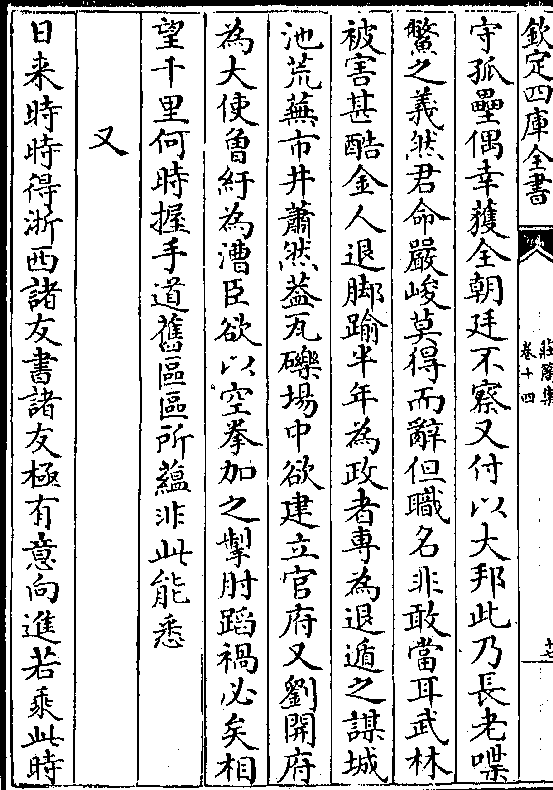 欽定四庫全書
卷十四
守孤壘偶幸獲全朝廷不察又付以大邦此乃長老喋
鱉之義然君命嚴峻莫得而辭但職名非敢當耳武林
被害甚酷金人退脚踰半年為政者專為退遁之謀城
池荒蕪市井蕭然葢瓦礫場中欲建立官府又劉開府
為大使曾紆為漕臣欲以空拳加之掣肘蹈禍必矣相
望千里何時握手道舊區區所蘊非此能悉
又
日来時時得浙西諸友書諸友極有意向進若乘此時